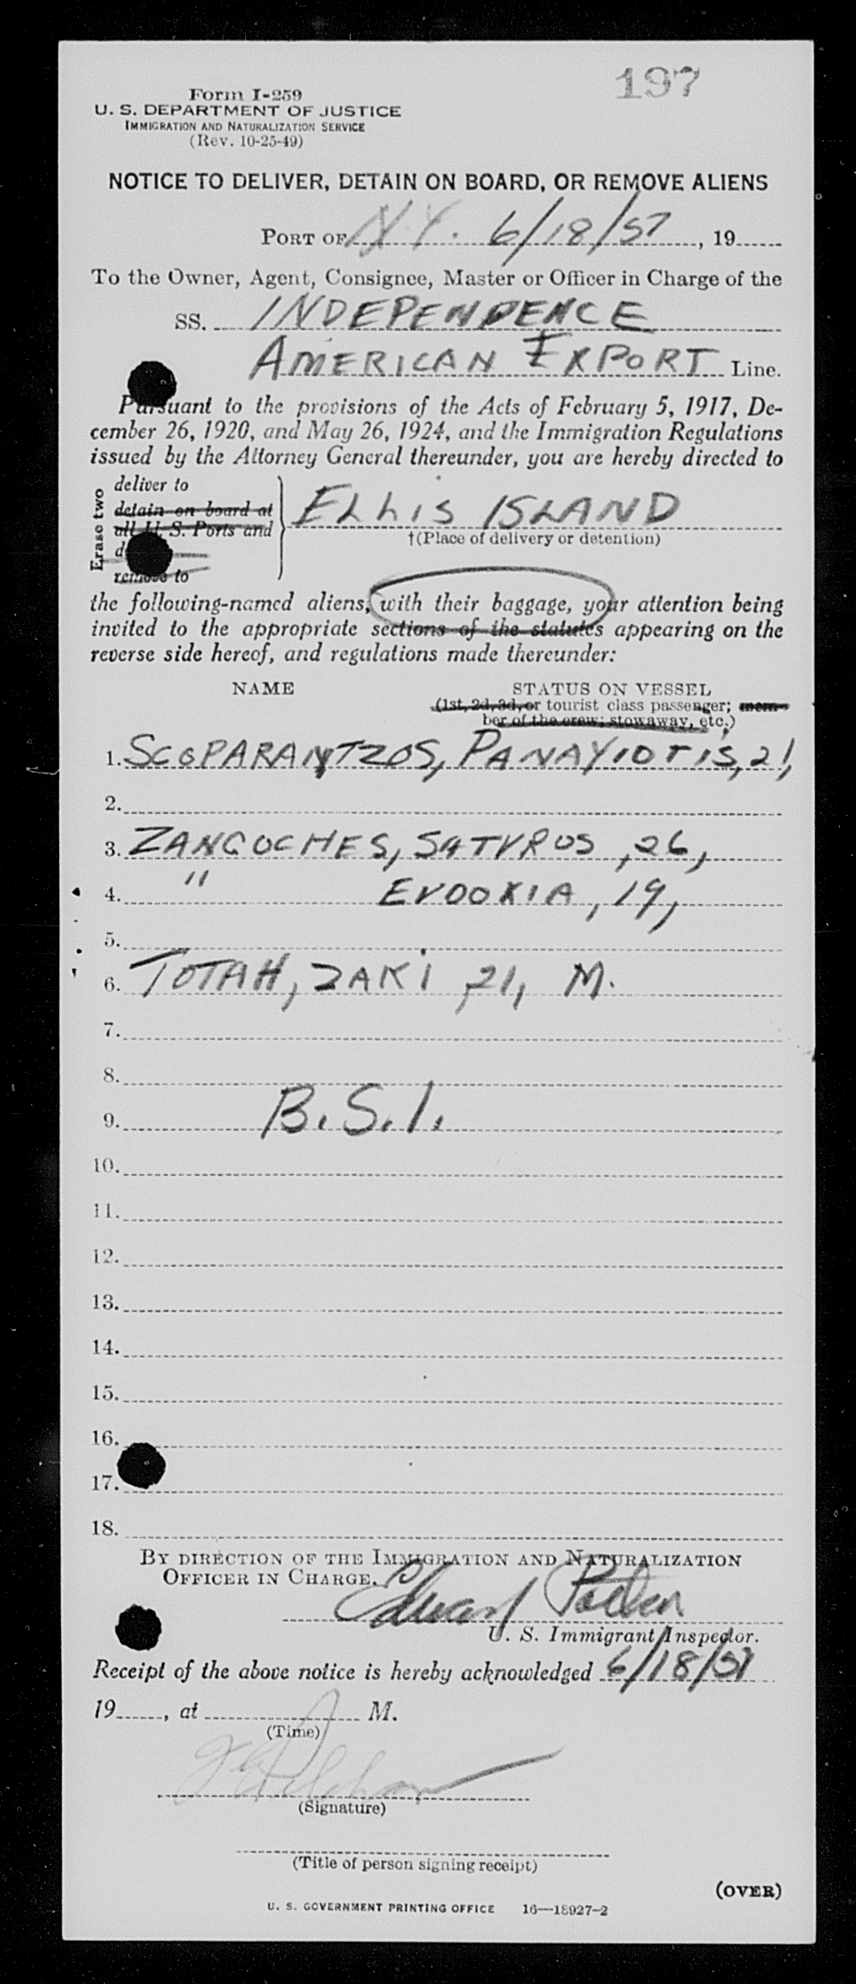 197
Form I-259
U. S. DEPARTMENT OF JUSTICE
IMMIGRATION AND NATURALIZATION SERVICE
(Rev. 10-25-49)
NOTICE TO DELIVER, DETAIN ON BOARD, OR REMOVE ALIENS
PORT OF N.Y. 6/18/51, 19
To the Owner, Agent, Consignee, Master or Officer in Charge of the
SS. INDEPENDENCE
AMERICAN EXPORT Line.
Pursuant to the provisions of the Acts of February 5, 1917, De-
cember 26, 1920, and May 26, 1924, and the Immigration Regulations
issued by the Attorney General thereunder, you are hereby directed to
Erase two
deliver to
detain on board at
all U. S. Ports and
remove to
ELLIS ISLAND
†(Place of delivery or detention)
the following-named aliens, with their baggage, your attention being
invited to the appropriate sections of the statutes appearing on the
reverse side hereof, and regulations made thereunder:
NAME STATUS ON VESSEL
(1st, 2d, 3d, or tourist class passenger; mem-
ber of the crew; stowaway, etc.)
1. SCOPARANTZOS, PANAYIOTIS, 21,
2.
3. ZANGOCHES, SATYROS, 26,
4. " EVDOKIA, 19,
5.
6. TOTAH, ZAKI, 21, M.
7.
8.
9. B.S.I.
10.
11.
12.
13.
14.
15.
16.
17.
18.
BY DIRECTION OF THE IMMIGRATION AND NATURALIZATION
OFFICER IN CHARGE.
Edward
U. S. Immigrant Inspector.
Receipt of the above notice is hereby acknowledged 6/18/51
19, at M.
(Time)
(Signature)
(Title of person signing receipt)
(OVER)
U. S. GOVERNMENT PRINTING OFFICE 16—18927-2